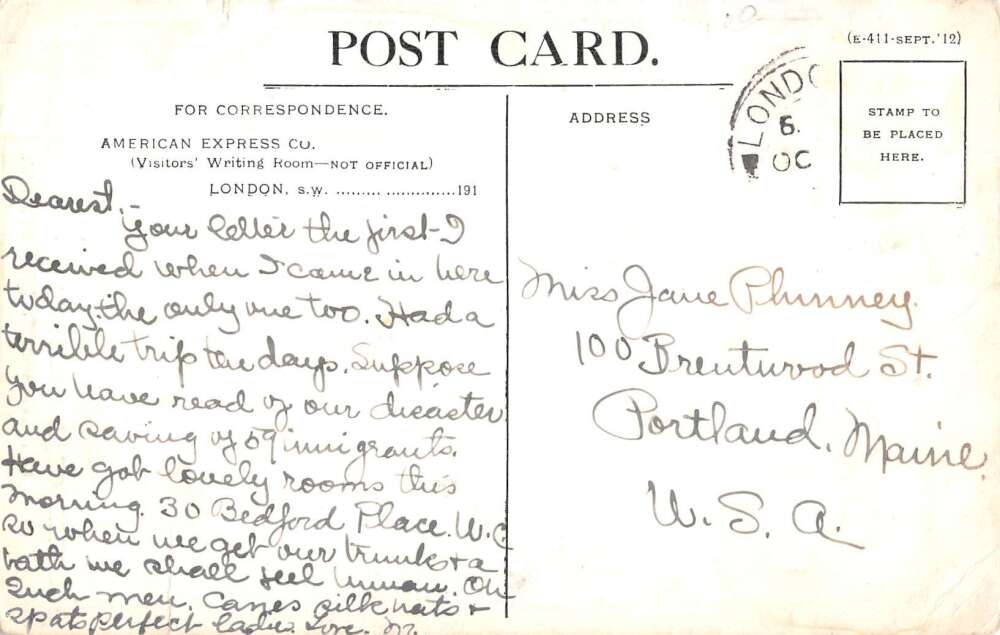 POST CARD.
(E-411-SEPT.'12)
FOR CORRESPONDENCE.
AMERICAN EXPRESS CO.
(Visitors' Writing Room—NOT OFFICIAL)
LONDON, S.W. ......... ...............191
Dearest,-
Your letter the first I
received when I came in here
today. the only one too. Had a
terrible trip ten days. Suppose
you have read of our disaster
and saving of 59 immigrants.
Have got lovely rooms this
morning. 30 Bedford Place. W.C
so when we get our trunks + a
bath we shall feel human. Oh
such men. Canes silk hats +
spats perfect ladies. Love. M.
ADDRESS
LONDO
6.
OC
STAMP TO
BE PLACED
HERE.
Miss Jane Phinney.
100 Brentwood St.
Portland, Maine.
U. S. A.